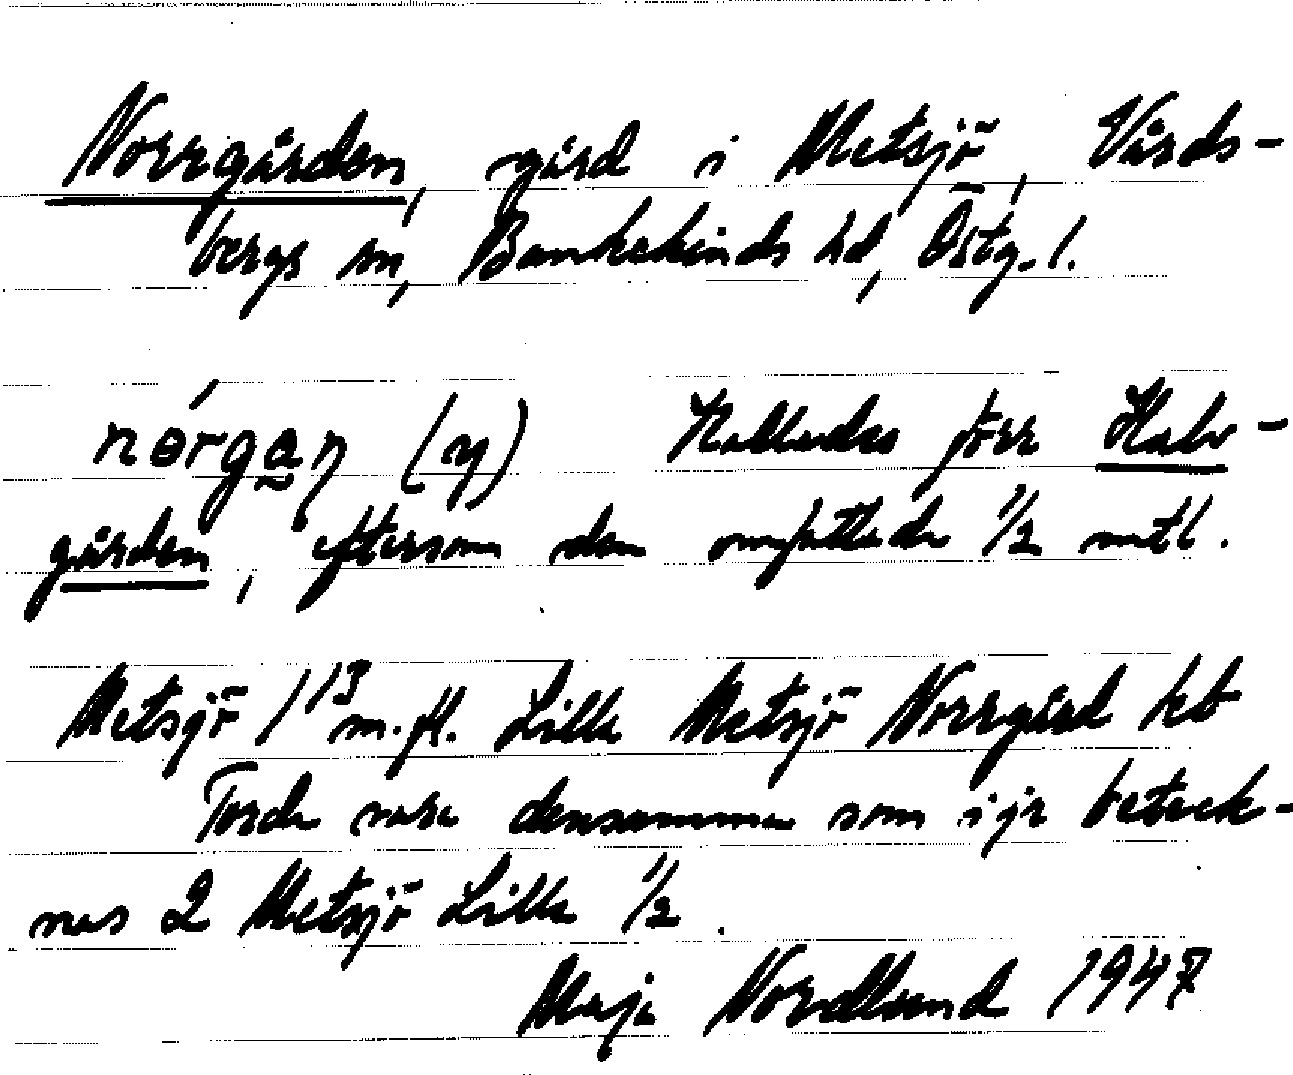 Norrgården, gård i Metsjö, Vårds-
bergs sn, Bankekinds hd, Östg. l.
nórgan (y) Kallades förr Halv-
gården, eftersom den omfattade 1/2 mtl.
Metsjö 1/13 m.fl. Lilla Metsjö Norrgård kb
Torde vara densamma som i jr beteck-
nas 2 Metsjö Lilla 1/2.
Maja Nordlund 1947